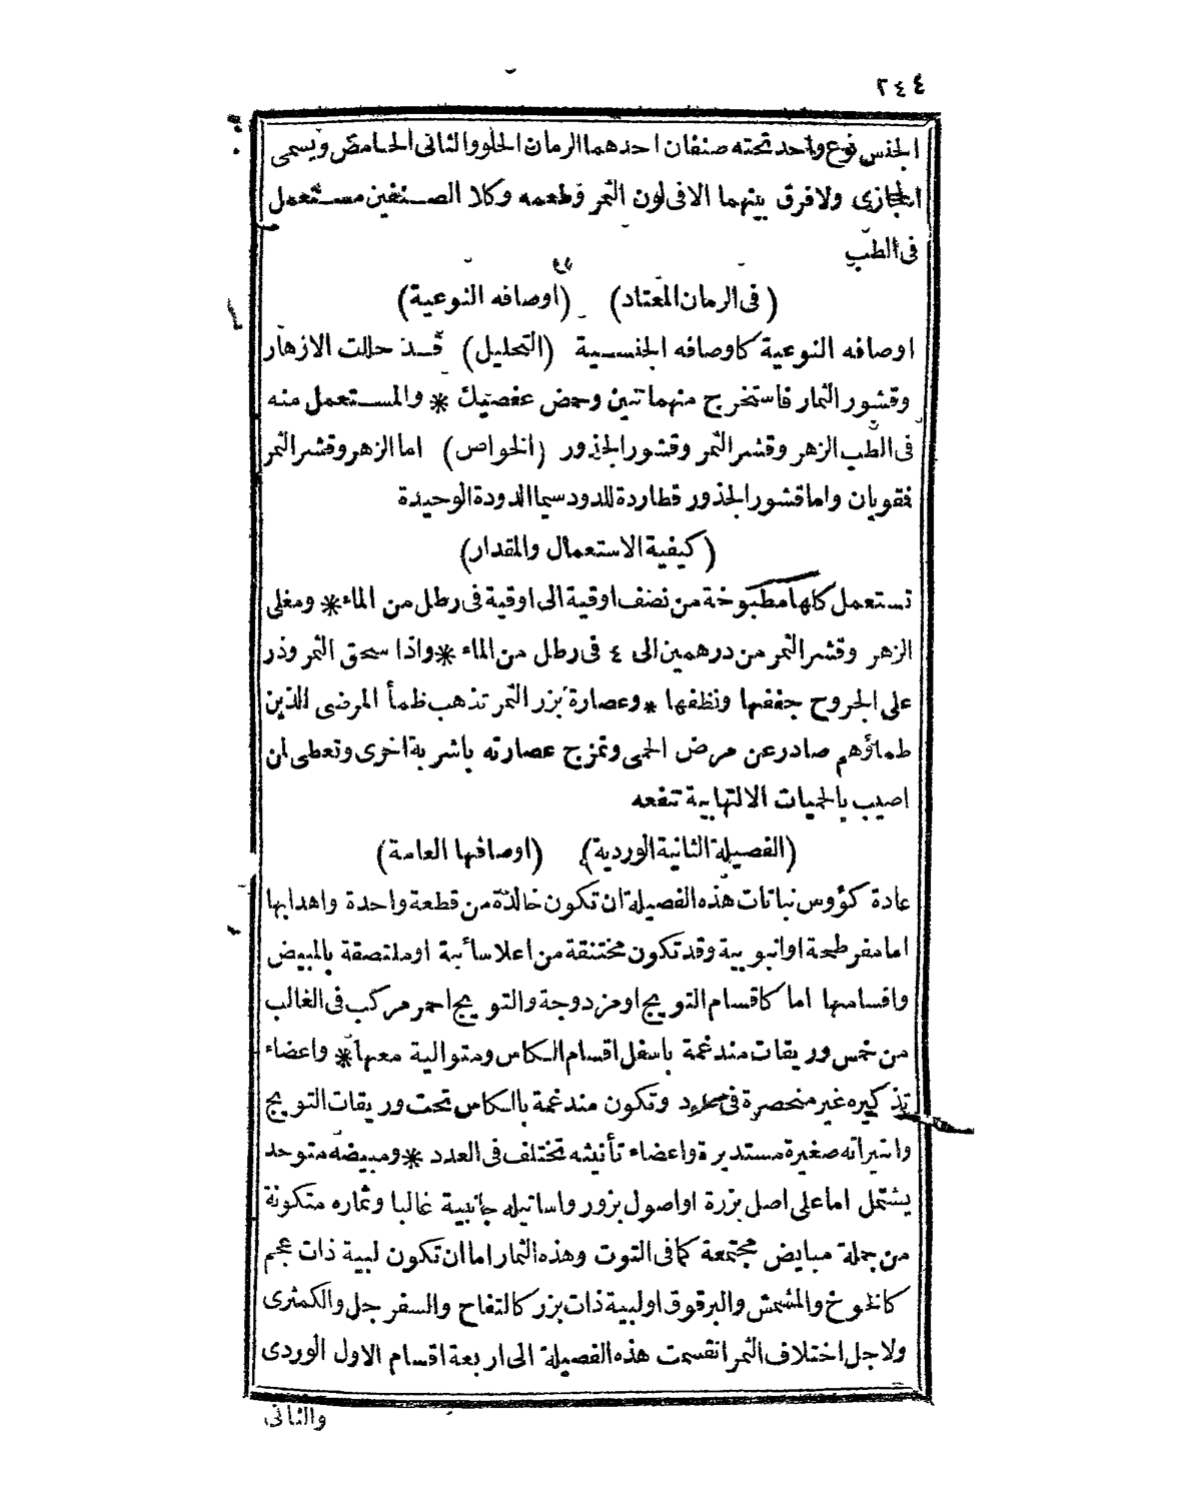 ٢٤٤
الجنس نوع واحد تحته صنفان احدهما الرمان الحلو والثانى الحامض ويسمى
الحجازى ولا فرق بينهما الا فى لون الثمر وطعمه وكلا الصنفين مستعمل
فى الطب
(فى الرمان المعتاد) (اوصافه النوعية)
اوصافه النوعية كاوصافه الجنسية (التحليل) قد حللت الازهار
وقشور الثمار فاستخرج منهما تنين وحمض عفصيك * والمستعمل منه
فى الطب الزهر وقشر الثمر وقشور الجذور (الخواص) اما الزهر وقشر الثمر
فقويان واما قشور الجذور فطاردة للدود سيما الدودة الوحيدة
(كيفية الاستعمال والمقدار)
تستعمل كلها مطبوخة من نصف اوقية الى اوقية فى رطل من الماء * ومغلى
الزهر وقشر الثمر من درهمين الى ٤ فى رطل من الماء * واذا سحق الثمر وذر
على الجروح جففها ونظفها * وعصارة بزر الثمر تذهب ظمأ المرضى الذين
ظماؤهم صادر عن مرض الحمى وتمزج عصارته باشربة اخرى وتعطى لمن
اصيب بالحميات الالتهابية تنفعه
(الفصيلة الثانية الوردية) (اوصافها العامة)
عادة كؤوس نباتات هذه الفصيلة ان تكون خالدة من قطعة واحدة واهدابها
اما مفرطحة او انبوبية وقد تكون مختنقة من اعلا سائبة او ملتصقة بالمبيض
واقسامها اما كاقسام التويج او مزدوجة والتويج احمر مركب فى الغالب
من خمس وريقات مندغمة باسفل اقسام الكاس ومتوالية معها * واعضاء
تذكيره غير منحصرة فى عدد وتكون مندغمة بالكاس تحت وريقات التويج
وانتيراته صغيرة مستديرة واعضاء تأنيثه تختلف فى العدد * ومبيضه متوحد
يشتمل اما على اصل بزرة او اصول بزور واساتيله جانبية غالبا وثماره متكونة
من جملة مبايض مجتمعة كما فى التوت وهذه الثمار اما ان تكون لبية ذات عجم
كالخوخ والمشمش والبرقوق او لبية ذات بزر كالتفاح والسفرجل والكمثرى
ولاجل اختلاف الثمر انقسمت هذه الفصيلة الى اربعة اقسام الاول الوردى
والثانى